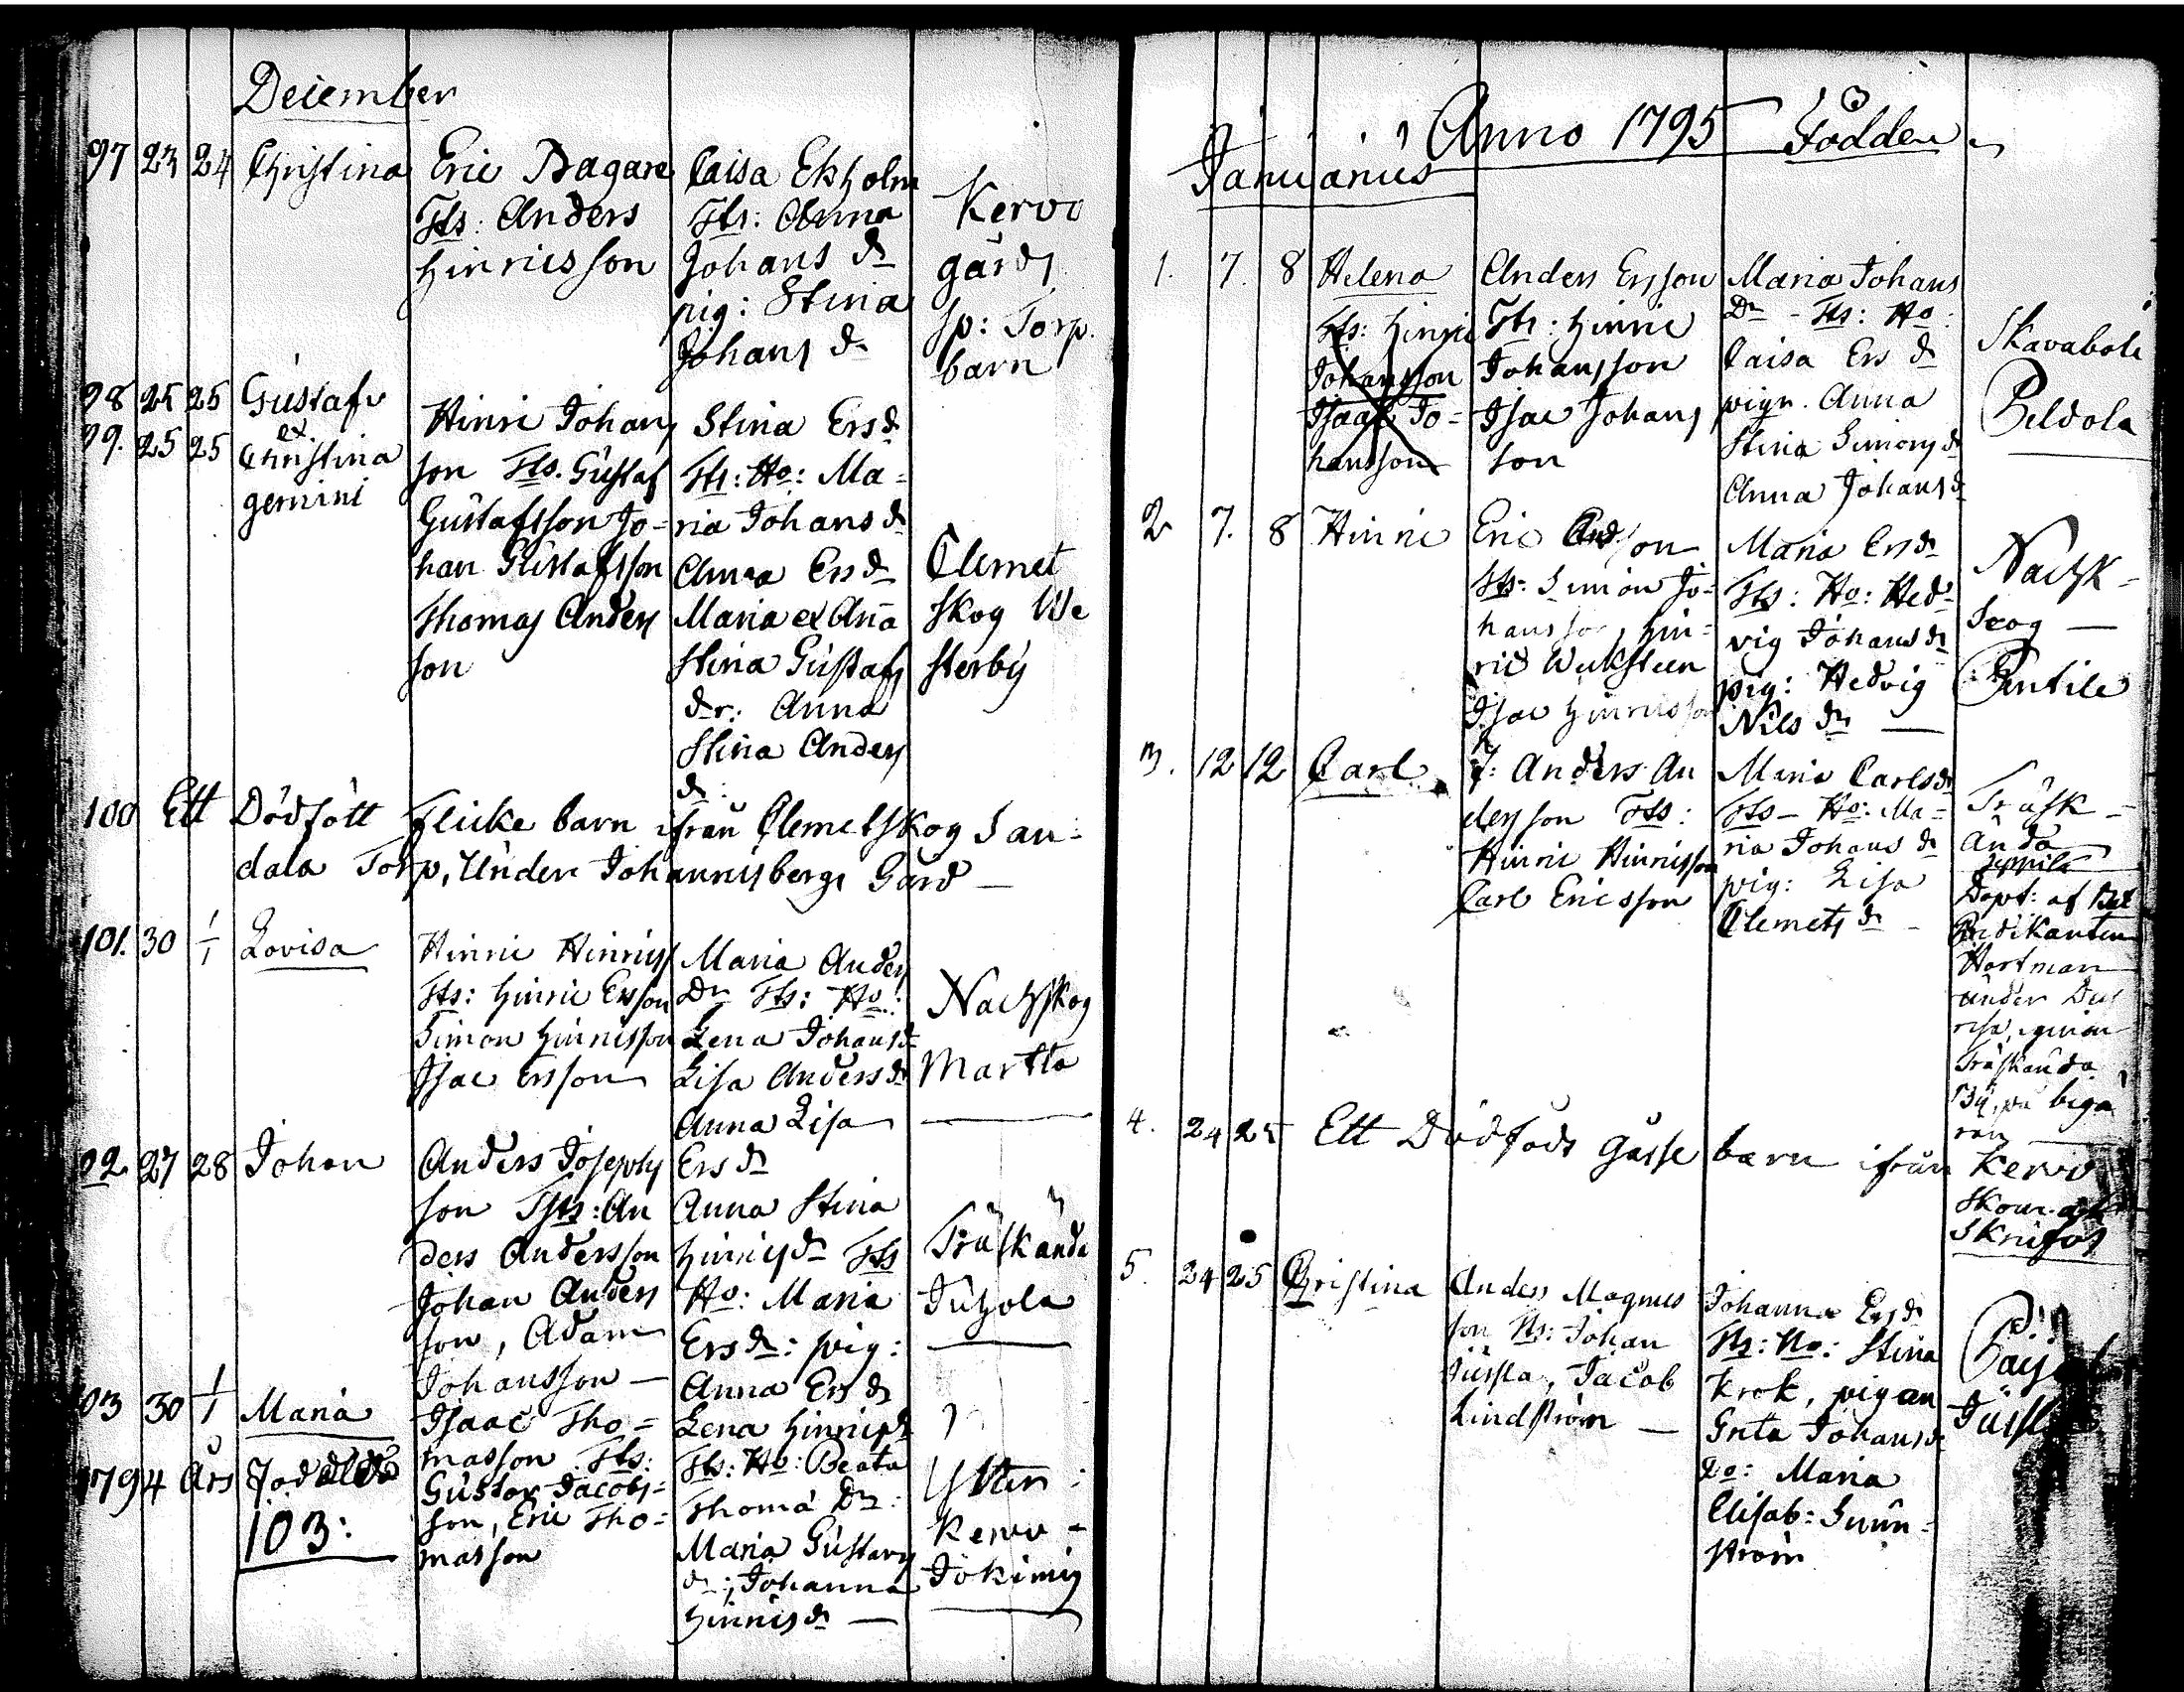 December
97 23 24 Christina
Eric Bagare
Fts: Anders
Hinricsson
Caisa Ekholm
Fts: Anna
Johans dr
pig: Stina
Johans dr
Kervo
gårds
sp: Torp.
barn
98 25 25 Gustaf
99. 25 25 et Christina
gemini
Hinric Johans
son Fts. Gustaf
Gustafsson Jo=
han Gustafsson
Thomas Anders
son
Stina Ers dr
Fts: Ho: Ma=
ria Johans dr
Anna Ers dr
Maria et Anna
Stina Gustafs
dr: Anna
Stina Anders
dr
Clemet
skog We
sterby
100 Ett Dödfött Flicke barn ifrån Clemetskog San=
dala Torp, Under Johannisbergs Gård —
101. 30 1/1 Lovisa
Hinric Hinrics
Fts: Hinric Ersson
Simon Hinricsson
Isac Ersson
Maria Anders
Dr Fts: Ho:
Lena Johans dr
Lisa Anders dr
Anna Lisa
Ers dr
Nackskog
Martla
02 27 28 Johan
Anders Josephs
son Fts: An
ders Andersson
Johan Anders
son, Adam
Johansson —
Anna Stina
Hinrics dr Fts
Ho: Maria
Ers dr: pig:
Anna Ers dr
Träskända
Juhola
03 30 1/1 Maria
Isaac Tho=
masson Fts:
Gustav Jacobs=
son, Eric Tho=
masson
Lena Hinrics dr
Fts: Ho: Beata
Thoma Dr:
Maria Gustavs
dr; Johanna
Hinrics dr —
Ytter
Kervo -
Jokimäg
1794 års Födde
103:
Anno 1795 Födde
Januarius
1. 7. 8 Helena
Fts: Hinric
Johansson
Isaac Jo=
hansson
Anders Ersson
Fts: Hinric
Johansson
Isac Johans
son
Maria Johans
Dr - Fts: Ho:
Caisa Ers dr
pigr. Anna
Stina Simons dr
Anna Johans dr
Skavaböle
Peldola
2 7. 8 Hinric
Eric Andsson
Fts: Simon Jo=
hansson, Hin=
ric Weksteen
Isac Hinricsson
Maria Ers dr
Fts: Ho: Hed=
vig Johans dr
pig: Hedvig
Nils dr —
Nacksk=
scog —
Pentile
3. 12 12 Carl
T: Anders An
dersson Fts:
Hinric Hinricsson
Carl Ericsson
Maria Carls dr
Fts — Ho: Ma=
ria Johans dr
pig: Lisa
Clemets dr -
Träsk-
ända
Seppilä
Döpt: af
Predikanten
Hartman
under
resa, genom
Träskända
By, på begä
ran
4. 24 25 Ett Dödfödt gåsse barn ifrån Kervo
5. 24 25 Christina
Anders Magnus
son Fts: Johan
Jussila, Jacob
Lindström —
Johanna Ers dr
Fts: Ho: Stina
Krok, pigan
Greta Johans dr
Do: Maria
Elisab: Sunn=
ström